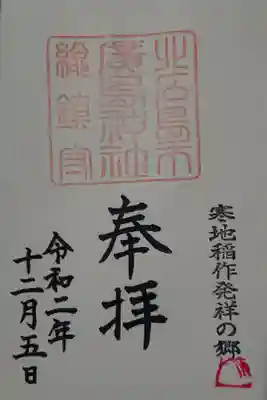 寒地稲作発祥の郷
奉拝
北広島市
廣島神社
総鎮守
令和二年
十二月五日